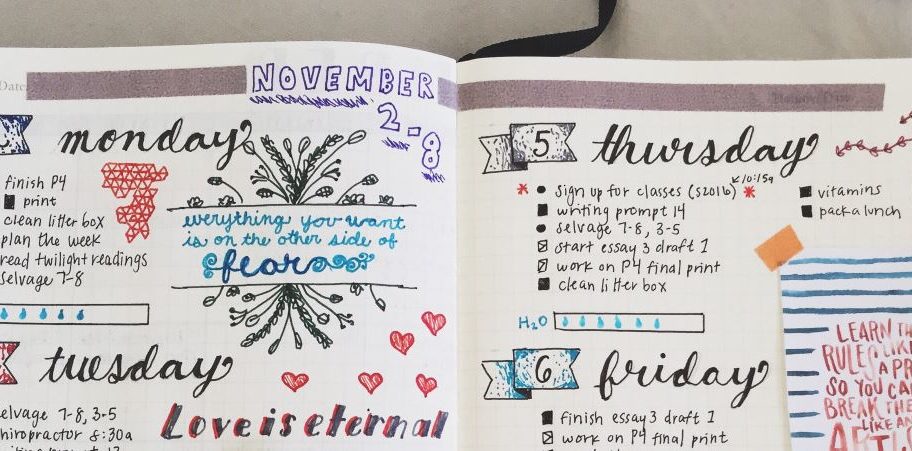 NOVEMBER
2-8
monday
finish P4
print
clean litter box
plan the week
read twilight readings
selvage 7-8
everything you want
is on the other side of
fear
tuesday
elvage 7-8, 3-5
hiropractor 8:30a
Love is eternal
5 thursday
sign up for classes (s2016) 10:15a
writing prompt 14
selvage 7-8, 3-5
start essay 3 draft 1
work on P4 final print
clean litter box
vitamins
pack a lunch
H2O
6 friday
finish essay 3 draft 1
work on P4 final print
LEARN TH
RULES LIKE
A PR
SO YOU CA
BREAK THE
LIKE AN